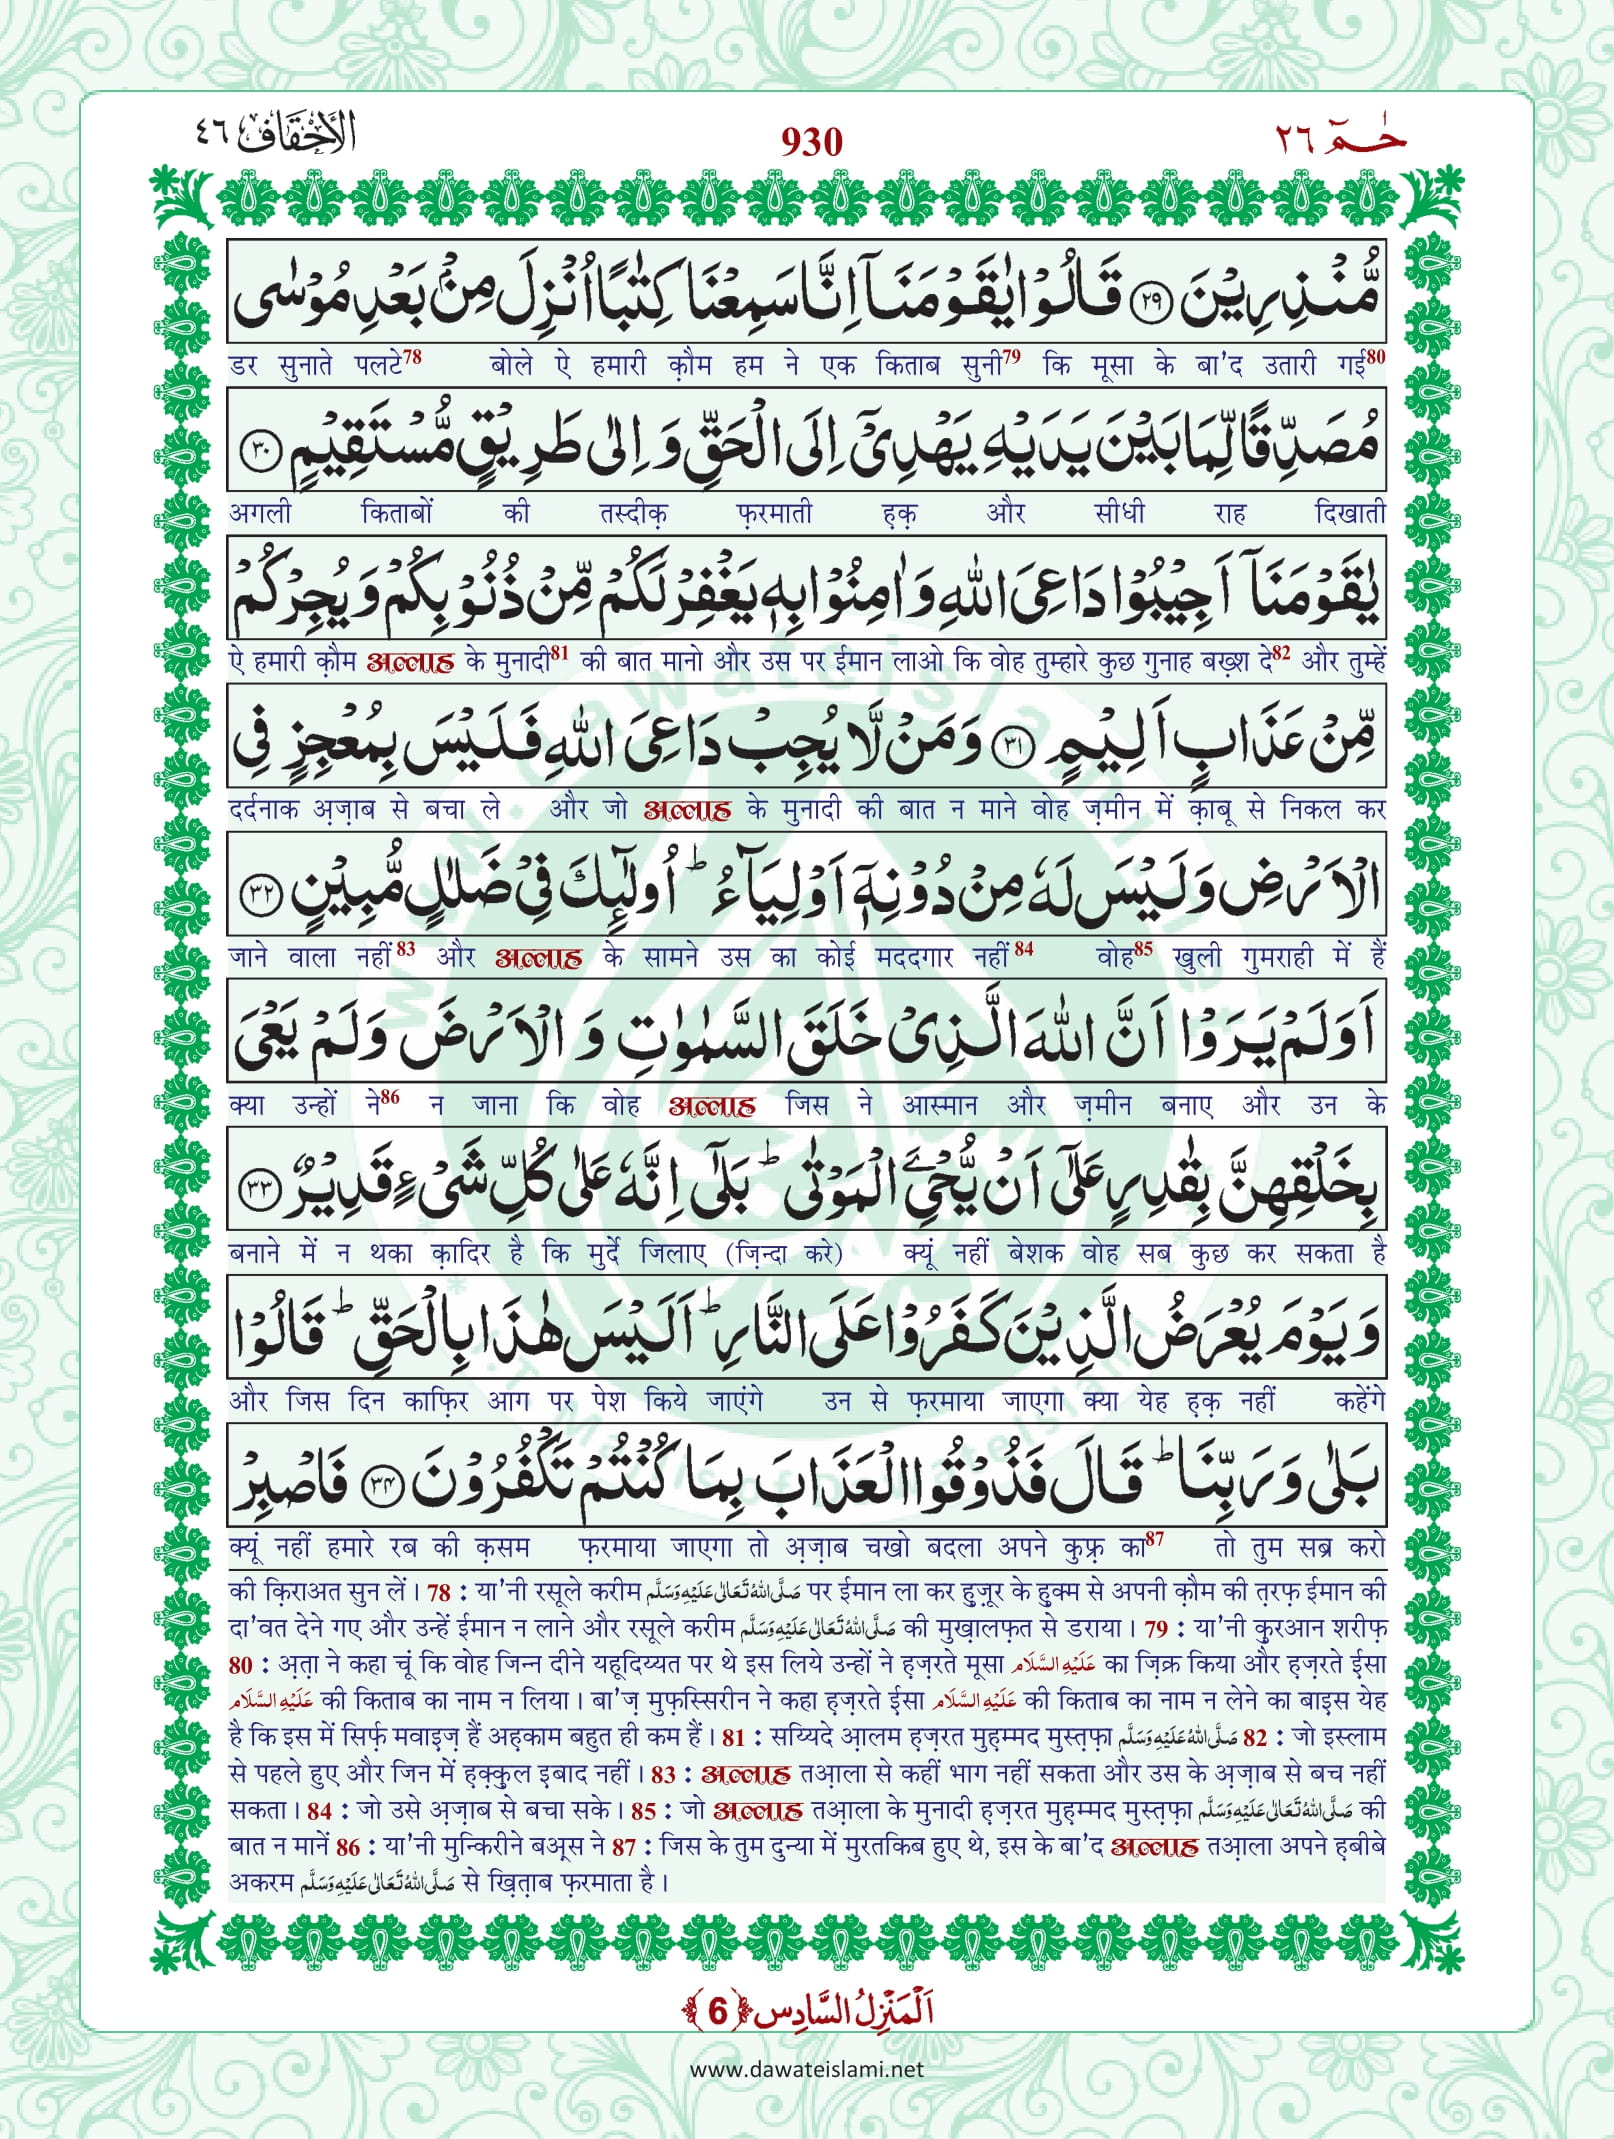 حٰمٓ ٢٦
930
الأحقاف ٤٦
مُّنْذِرِیْنَ ﴿۲۹﴾ قَالُوْا یٰقَوْمَنَاۤ اِنَّا سَمِعْنَا كِتٰبًا اُنْزِلَ مِنْۢ بَعْدِ مُوْسٰى
डर सुनाते पलटे78 बोले ऐ हमारी क़ौम हम ने एक किताब सुनी79 कि मूसा के बा'द उतारी गई80
مُصَدِّقًا لِّمَا بَیْنَ یَدَیْهِ یَهْدِیْۤ اِلَى الْحَقِّ وَ اِلٰى طَرِیْقٍ مُّسْتَقِیْمٍ ﴿۳۰﴾
अगली किताबों की तस्दीक़ फ़रमाती ह़क़ और सीधी राह दिखाती
یٰقَوْمَنَاۤ اَجِیْبُوْا دَاعِیَ اللّٰهِ وَ اٰمِنُوْا بِهٖ یَغْفِرْ لَكُمْ مِّنْ ذُنُوْبِكُمْ وَ یُجِرْكُمْ
ऐ हमारी क़ौम अल्लाह के मुनादी81 की बात मानो और उस पर ईमान लाओ कि वोह तुम्हारे कुछ गुनाह बख़्श दे82 और तुम्हें
مِّنْ عَذَابٍ اَلِیْمٍ ﴿۳۱﴾ وَ مَنْ لَّا یُجِبْ دَاعِیَ اللّٰهِ فَلَیْسَ بِمُعْجِزٍ فِی
दर्दनाक अ़ज़ाब से बचा ले और जो अल्लाह के मुनादी की बात न माने वोह ज़मीन में क़ाबू से निकल कर
الْاَرْضِ وَ لَیْسَ لَهٗ مِنْ دُوْنِهٖۤ اَوْلِیَآءُؕ اُولٰٓىٕكَ فِیْ ضَلٰلٍ مُّبِیْنٍ ﴿۳۲﴾
जाने वाला नहीं83 और अल्लाह के सामने उस का कोई मददगार नहीं84 वोह85 खुली गुमराही में हैं
اَوَ لَمْ یَرَوْا اَنَّ اللّٰهَ الَّذِیْ خَلَقَ السَّمٰوٰتِ وَ الْاَرْضَ وَ لَمْ یَعْیَ
क्या उन्हों ने86 न जाना कि वोह अल्लाह जिस ने आस्मान और ज़मीन बनाए और उन के
بِخَلْقِهِنَّ بِقٰدِرٍ عَلٰۤى اَنْ یُّحْیِﰯ الْمَوْتٰىؕ بَلٰۤى اِنَّهٗ عَلٰى كُلِّ شَیْءٍ قَدِیْرٌ ﴿۳۳﴾
बनाने में न थका क़ादिर है कि मुर्दे जिलाए (ज़िन्दा करे) क्यूं नहीं बेशक वोह सब कुछ कर सकता है
وَ یَوْمَ یُعْرَضُ الَّذِیْنَ كَفَرُوْا عَلَى النَّارِؕ اَلَیْسَ هٰذَا بِالْحَقِّؕ قَالُوْا
और जिस दिन काफ़िर आग पर पेश किये जाएंगे उन से फ़रमाया जाएगा क्या येह ह़क़ नहीं कहेंगे
بَلٰى وَ رَبِّنَاؕ قَالَ فَذُوْقُوا الْعَذَابَ بِمَا كُنْتُمْ تَكْفُرُوْنَ ﴿۳۴﴾ فَاصْبِرْ
क्यूं नहीं हमारे रब की क़सम फ़रमाया जाएगा तो अ़ज़ाब चखो बदला अपने कुफ़्र का87 तो तुम सब्र करो
की क़िराअत सुन लें। 78 : या'नी रसूले करीम صَلَّى اللّٰهُ تَعَالٰى عَلَيْهِ وَسَلَّم पर ईमान ला कर हुज़ूर के हुक्म से अपनी क़ौम की त़रफ़ ईमान की
दा'वत देने गए और उन्हें ईमान न लाने और रसूले करीम صَلَّى اللّٰهُ تَعَالٰى عَلَيْهِ وَسَلَّم की मुख़ालफ़त से डराया। 79 : या'नी क़ुरआन शरीफ़
80 : अ़त़ा ने कहा चूं कि वोह जिन्न दीने यहूदिय्यत पर थे इस लिये उन्हों ने ह़ज़रते मूसा عَلَيْهِ السَّلَام का ज़िक्र किया और ह़ज़रते ईसा
عَلَيْهِ السَّلَام की किताब का नाम न लिया। बा'ज़ मुफ़स्सिरीन ने कहा ह़ज़रते ईसा عَلَيْهِ السَّلَام की किताब का नाम न लेने का बाइस येह
है कि इस में सिर्फ़ मवाइज़ हैं अह़काम बहुत ही कम हैं। 81 : सय्यिदे आ़लम ह़ज़रत मुह़म्मद मुस्त़फ़ा صَلَّى اللّٰهُ عَلَيْهِ وَسَلَّم 82 : जो इस्लाम
से पहले हुए और जिन में ह़क़्क़ुल इबाद नहीं। 83 : अल्लाह तआ़ला से कहीं भाग नहीं सकता और उस के अ़ज़ाब से बच नहीं
सकता। 84 : जो उसे अ़ज़ाब से बचा सके। 85 : जो अल्लाह तआ़ला के मुनादी ह़ज़रत मुह़म्मद मुस्त़फ़ा صَلَّى اللّٰهُ تَعَالٰى عَلَيْهِ وَسَلَّم की
बात न मानें 86 : या'नी मुन्किरीने बअ़्स ने 87 : जिस के तुम दुन्या में मुरतकिब हुए थे, इस के बा'द अल्लाह तआ़ला अपने ह़बीबे
अकरम صَلَّى اللّٰهُ تَعَالٰى عَلَيْهِ وَسَلَّم से ख़ित़ाब फ़रमाता है।
اَلْمَنْزِلُ السَّادِس ﴿6﴾
www.dawateislami.net